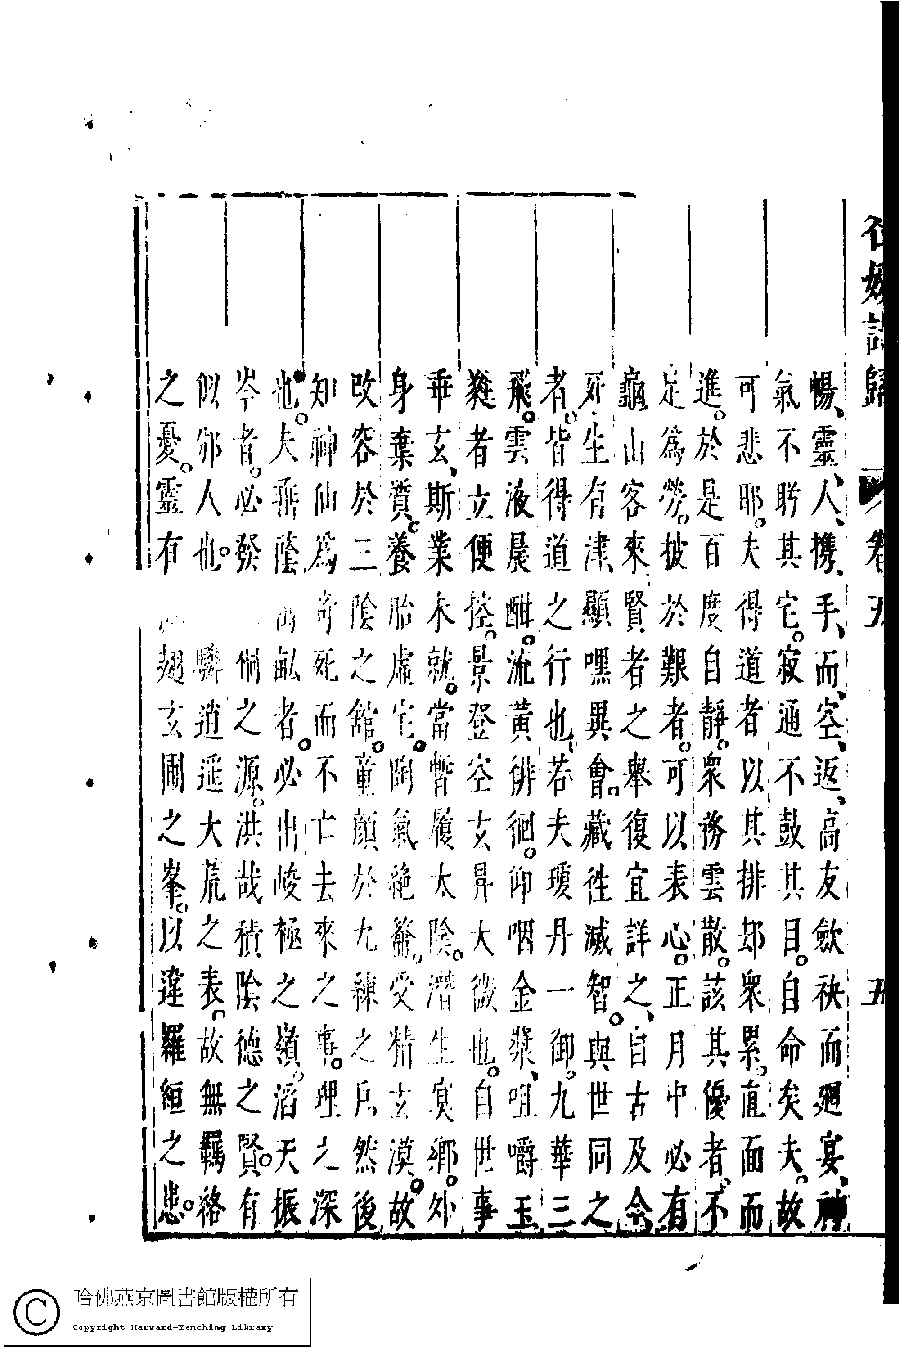 名媛詩歸
卷五
五
暢靈人攜手而空返高友歛袂而𢌞宴神
氣不盻其宅寂通不鼓其目自命矣夫故
可悲耶夫得道者以其排却衆累直面而
進於是百度自靜衆務雲散該其優者不
足爲勞披於艱者可以表心正月中必有
龜山客來賢者之舉復宜詳之自古及今
死生有津顯嘿異會藏徃滅智與世同之
者皆得道之行也若夫瓊丹一御九華三
飛雲液晨酣流黃徘徊仰咽金漿咀嚼玉
蕤者立便控景登空玄昇太微也自世事
乖玄斯業未就當暫履太陰潛生冥鄉外
身棄質養胎虛宅陶氣絶籥受精玄漠故
改容於三陰之館童顔於九鍊之戶然後
知神仙爲奇死而不亡去來之事理之深
也夫垂蔭 畝者必出峻極之嶺滔天振
岑者必發 之源洪哉積陰德之賢有
似邠人也 驎逍遥大荒之表故無羈絡
之憂靈有 翅玄圃之峯以違羅紲之患
哈佛燕京圖書館版權所有
Copyright Harvard-Yenching Library